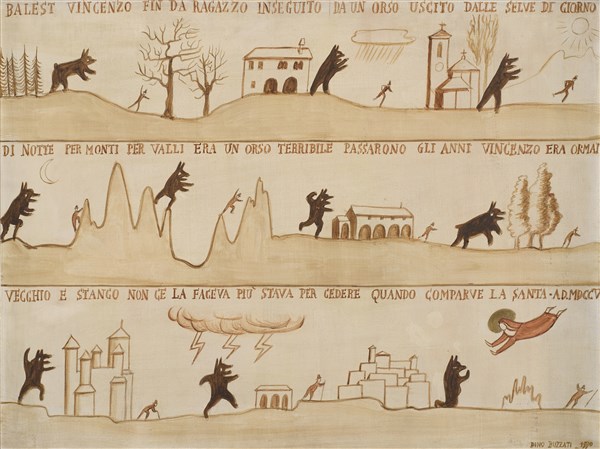 BALEST VINCENZO FIN DA RAGAZZO INSEGUITO DA UN ORSO USCITO DALLE SELVE DI GIORNO
DI NOTTE PER MONTI PER VALLI ERA UN ORSO TERRIBILE PASSARONO GLI ANNI VINCENZO ERA ORMAI
VECCHIO E STANCO NON CE LA FACEVA PIÙ STAVA PER CEDERE QUANDO COMPARVE LA SANTA - AD. MDCCV
DINO BUZZATI 1970